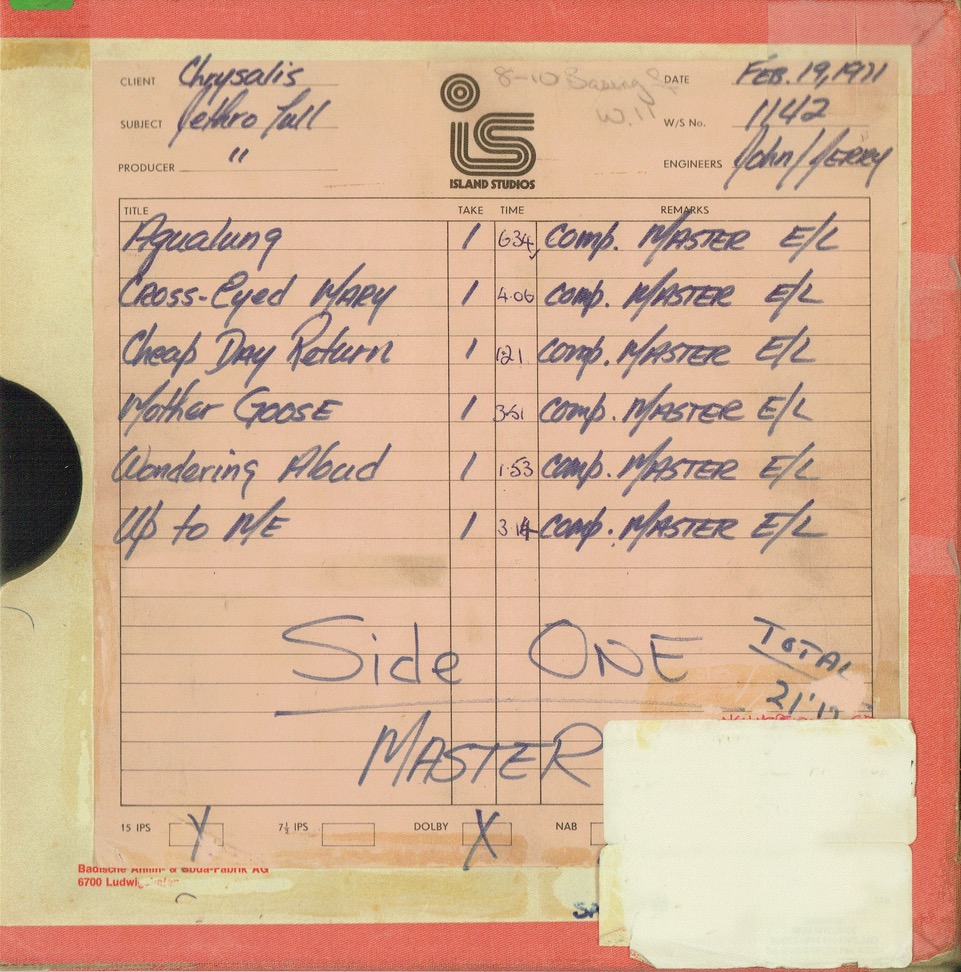 CLIENT Chrysalis
8-10 Basing St
W.11
DATE FEB. 19, 1971
SUBJECT Jethro Tull
W/S No. 1142
PRODUCER "
ENGINEERS John / JERRY
iS
ISLAND STUDIOS
TITLE TAKE TIME REMARKS
Aqualung 1 634 COMP. MASTER E/L
CROSS-Eyed MARY 1 4.06 COMP. MASTER E/L
Cheap Day Return 1 1.21 COMP. MASTER E/L
Mother GOOSE 1 3.51 COMP. MASTER E/L
Wondering Aloud 1 1.53 COMP. MASTER E/L
Up to ME 1 3.14 COMP. MASTER E/L
Side ONE
TOTAL
MASTER
15 IPS X 7½ IPS DOLBY X NAB
Badische Anilin- & Soda-Fabrik AG
6700